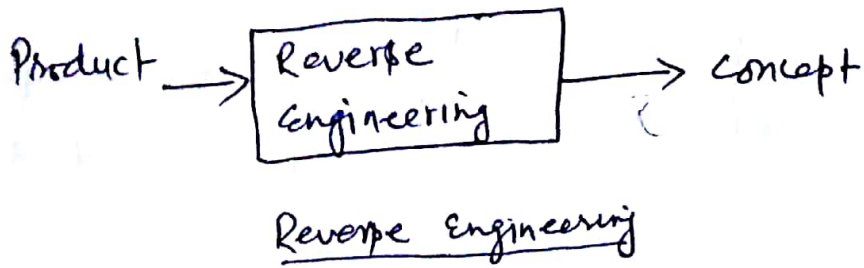 Product
Reverse
Engineering
Concept
Reverse Engineering